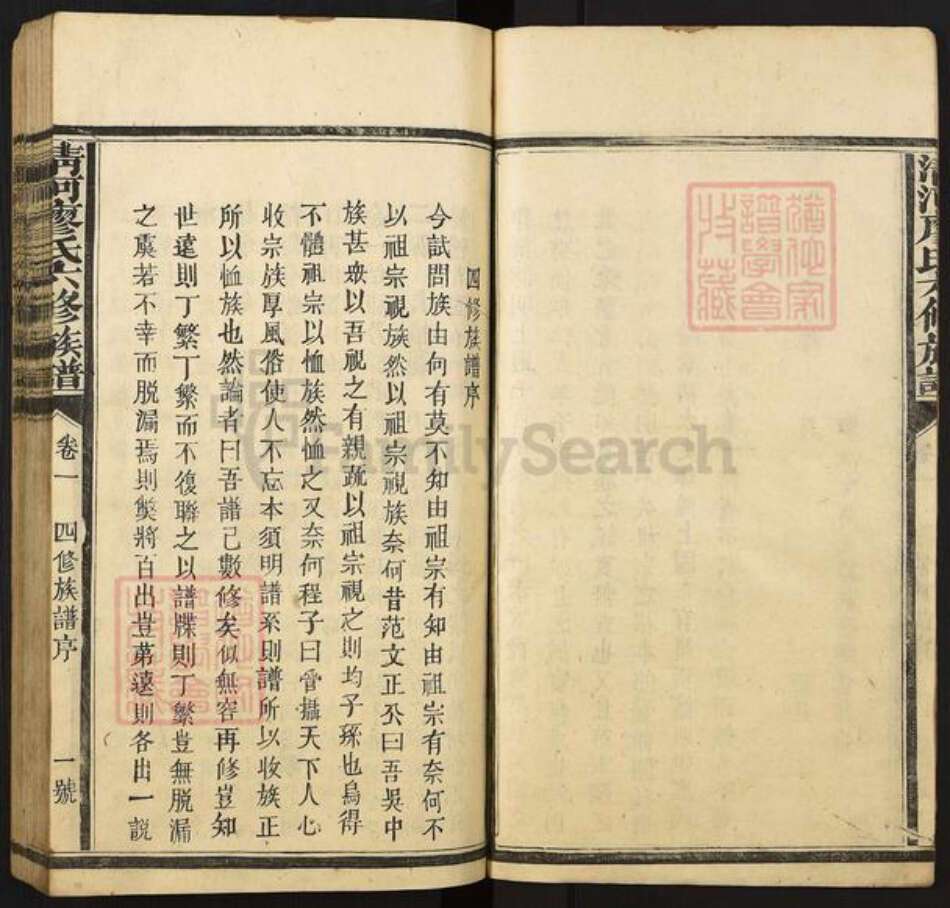 清河廖氏六修族譜
四修族譜序
今試問族由何有莫不知由祖宗有知由祖宗有奈何不
以祖宗視族然以祖宗視族奈何昔范文正公曰吾吳中
族甚衆以吾視之有親疏以祖宗視之則均子孫也烏得
不體祖宗以恤族然恤之又奈何程子曰管攝天下人心
收宗族厚風俗使人不忘本須明譜系則譜所以收族正
所以恤族也然論者曰吾譜已數修矣似無容再修豈知
世遠則丁繁丁繁而不復聯之以譜牒則丁繁豈無脱漏
之虞若不幸而脱漏焉則獘將百出豈第遠則各出一說
清河廖氏六修族譜
卷一
四修族譜序
一號
譜學會
收藏
FamilySearch